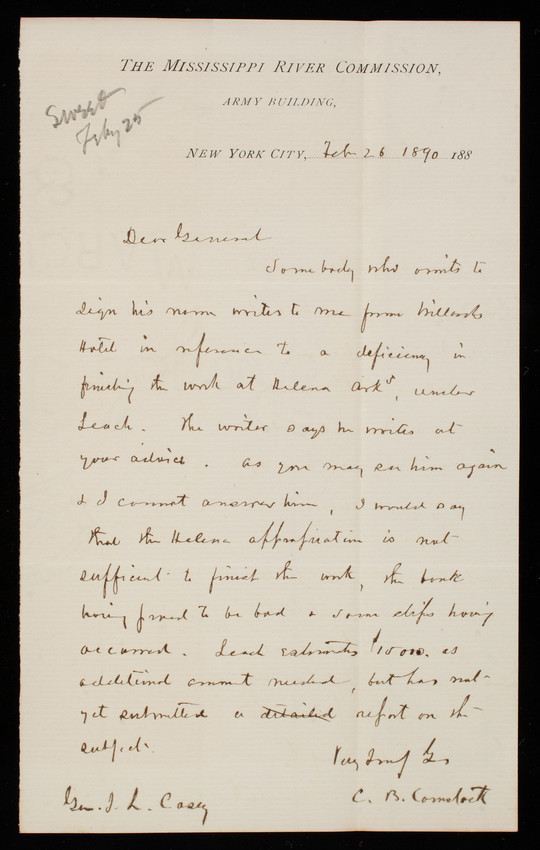 THE MISSISSIPPI RIVER COMMISSION,
ARMY BUILDING,
Sweet
Feby 25
NEW YORK CITY, Feb 26 1890 188
Dear General
Somebody who omits to
sign his name writes to me from Willards
Hotel in reference to a deficiency in
finishing the work at Helena Arks, under
Leach. The writer says he writes at
your advice. As you may see him again
& I cannot answer him, I would say
that the Helena appropriation is not
sufficient to finish the work, the bank
having proved to be bad & some slips having
occurred. Leach estimates $10000. as
additional amount needed, but has not
yet submitted a detailed report on the
subject.
Very Truly Yrs
C. B. Comstock
Gen. T. L. Casey